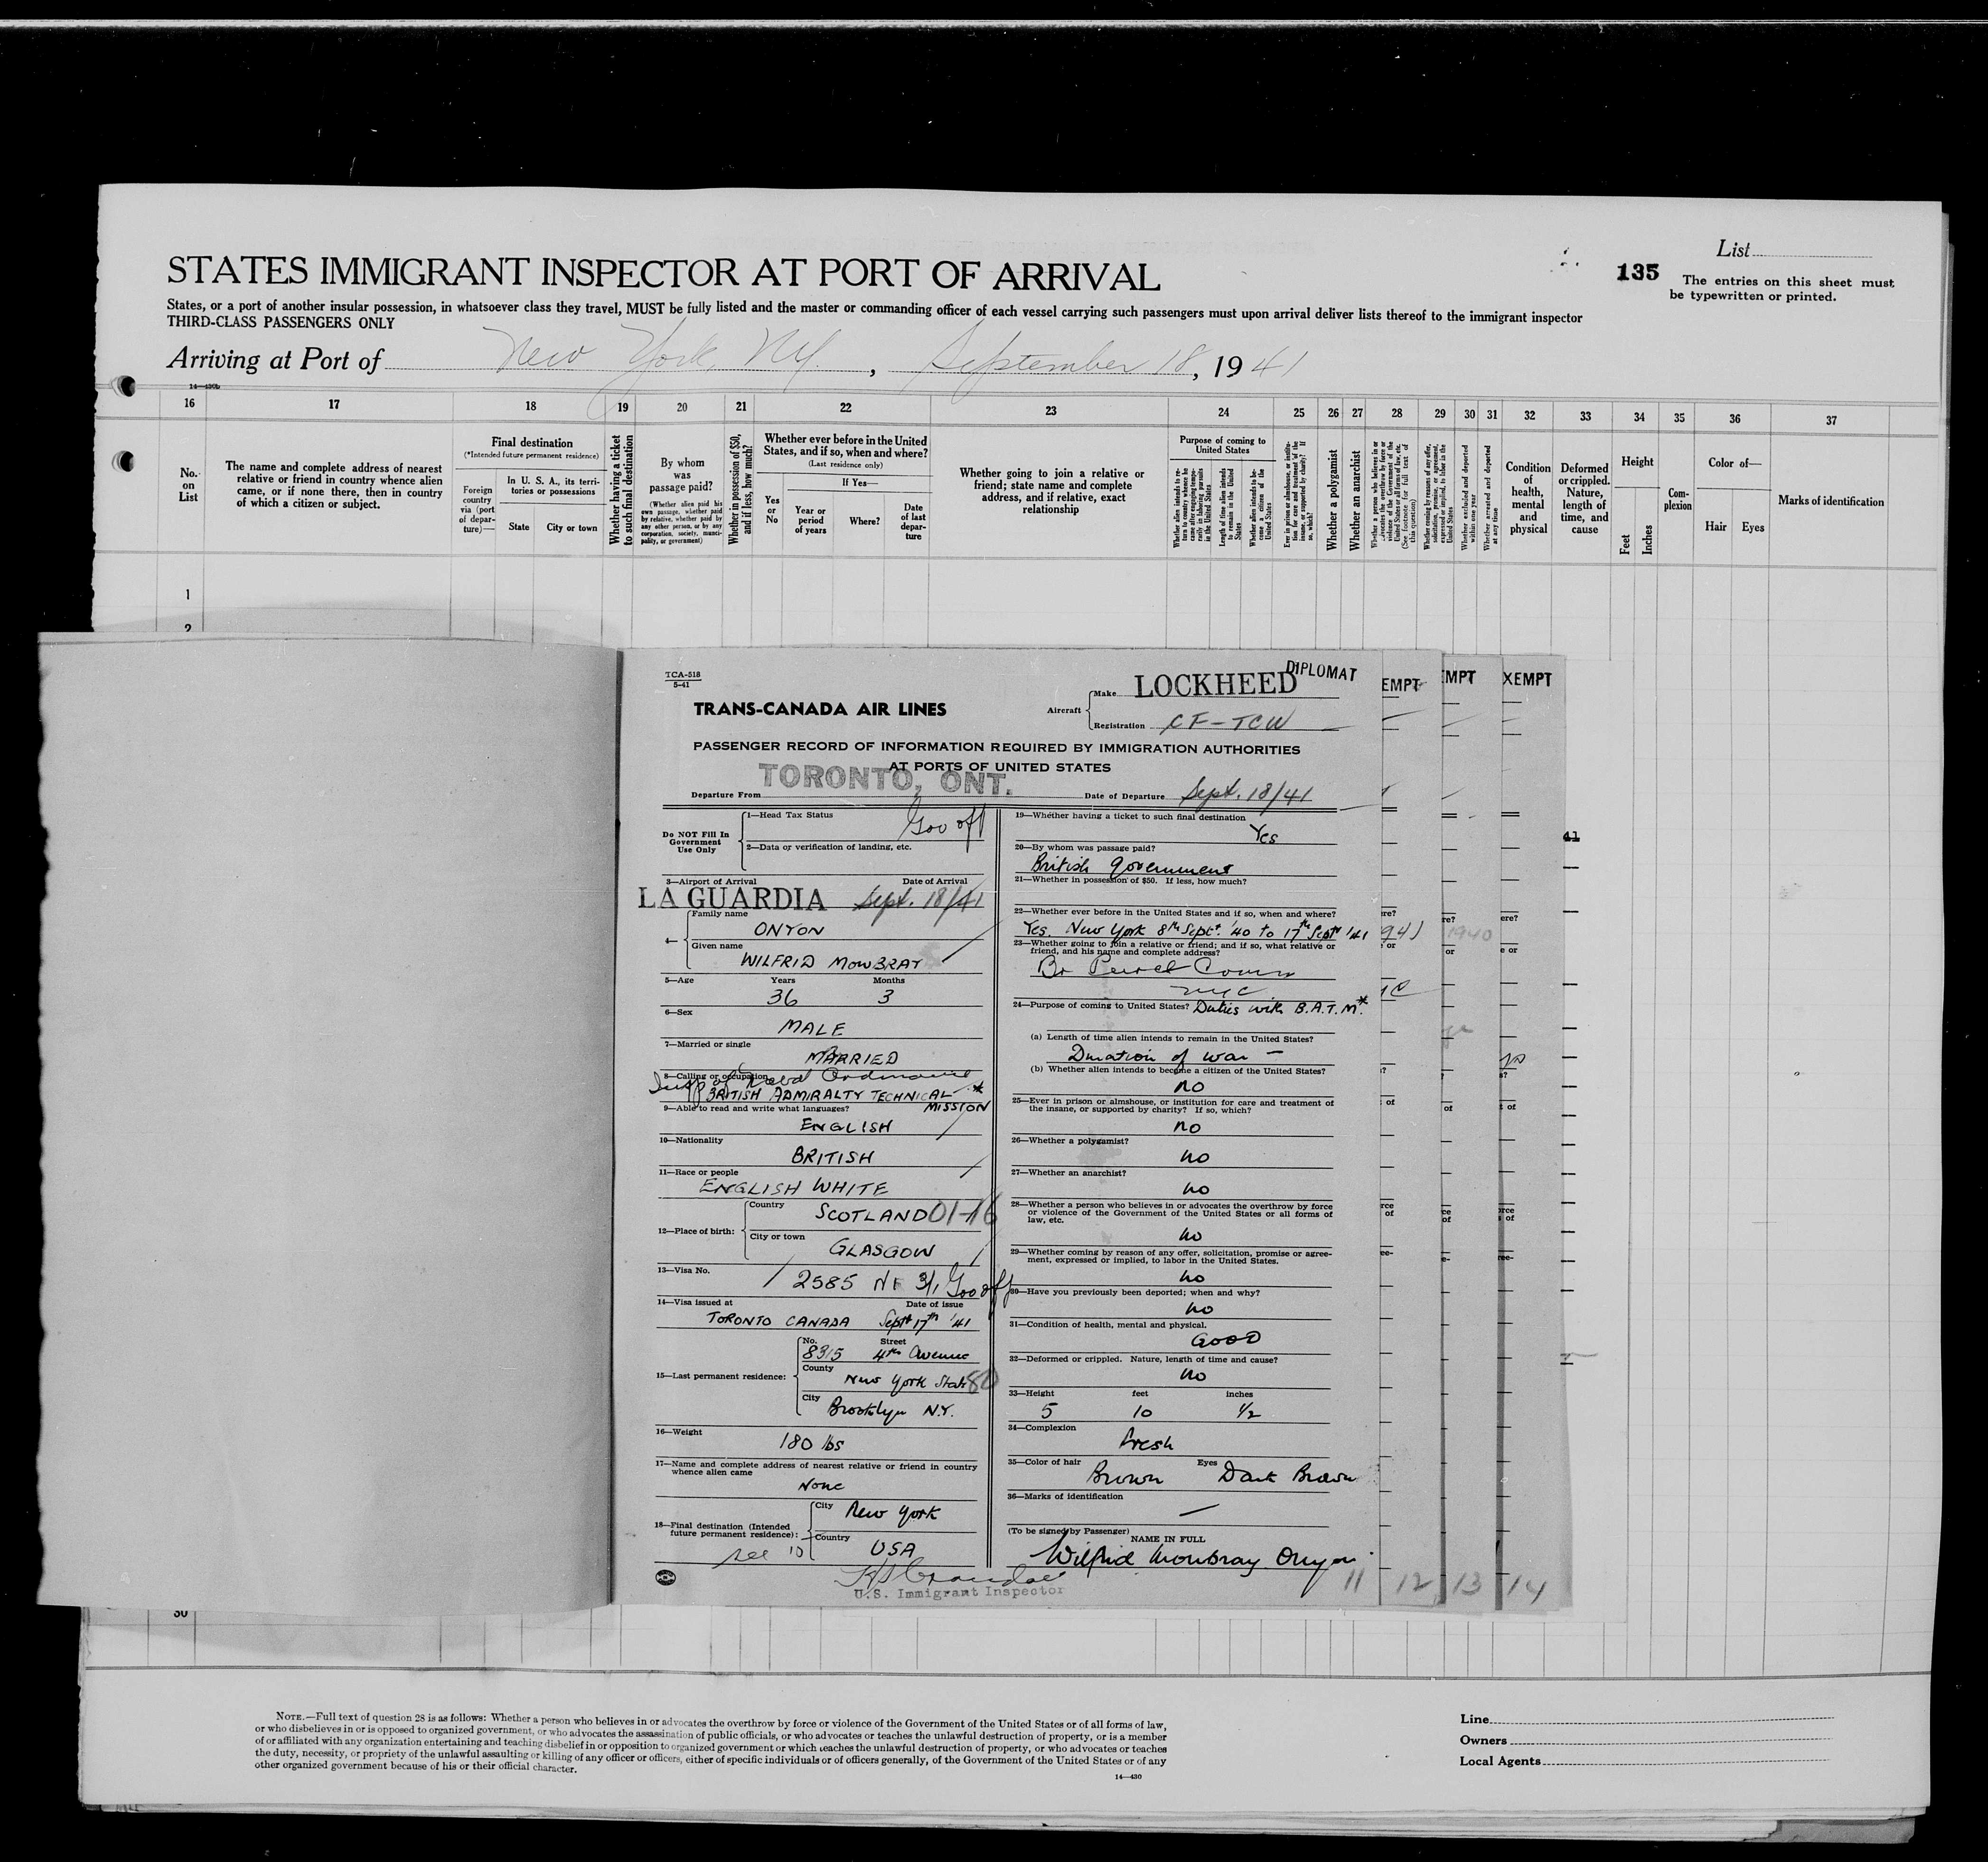 List
135
The entries on this sheet must
be typewritten or printed.
STATES IMMIGRANT INSPECTOR AT PORT OF ARRIVAL
States, or a port of another insular possession, in whatsoever class they travel, MUST be fully listed and the master or commanding officer of each vessel carrying such passengers must upon arrival deliver lists thereof to the immigrant inspector
THIRD-CLASS PASSENGERS ONLY
Arriving at Port of New York, NY. , September 18, 1941
14—430b
16 17 18 19 20 21 22 23 24 25 26 27 28 29 30 31 32 33 34 35 36 37
No.
on
List
The name and complete address of nearest
relative or friend in country whence alien
came, or if none there, then in country
of which a citizen or subject.
Final destination
(*Intended future permanent residence)
Foreign
country
via (port
of depar-
ture)—
In U. S. A., its terri-
tories or possessions
State
City or town
Whether having a ticket
to such final destination
By whom
was
passage paid?
(Whether alien paid his
own passage, whether paid
by relative, whether paid by
any other person, or by any
corporation, society, munici-
pality, or government)
Whether in possession of $50,
and if less, how much?
Whether ever before in the United
States, and if so, when and where?
(Last residence only)
Yes
or
No
If Yes—
Year or
period
of years
Where?
Date
of last
depar-
ture
Whether going to join a relative or
friend; state name and complete
address, and if relative, exact
relationship
Purpose of coming to
United States
Whether alien intends to re-
turn to country whence he
came after engaging tempo-
rarily in laboring pursuits
in the United States
Length of time alien intends
to remain in the United
States
Whether alien intends to be-
come a citizen of the
United States
Ever in prison or almshouse, or institu-
tion for care and treatment of the
insane, or supported by charity? If
so, which?
Whether a polygamist
Whether an anarchist
Whether a person who believes in or
advocates the overthrow by force or
violence of the Government of the
United States or all forms of law, etc.
(See footnote for full text of
this question)
Whether coming by reasons of any offer,
solicitation, promise, or agreement,
expressed or implied, to labor in the
United States
Whether excluded and deported
within one year
Whether arrested and deported
at any time
Condition
of
health,
mental
and
physical
Deformed
or crippled.
Nature,
length of
time, and
cause
Height
Feet
Inches
Com-
plexion
Color of—
Hair
Eyes
Marks of identification
1
2
TCA-518
5-41
TRANS-CANADA AIR LINES
Aircraft
Make LOCKHEED
DIPLOMAT
Registration CF-TCW
EMPT
MPT
XEMPT
PASSENGER RECORD OF INFORMATION REQUIRED BY IMMIGRATION AUTHORITIES
AT PORTS OF UNITED STATES
Departure From TORONTO, ONT.
Date of Departure Sept. 18/41
Do NOT Fill In
Government
Use Only
1—Head Tax Status Gov off
2—Data or verification of landing, etc.
3—Airport of Arrival Date of Arrival
LA GUARDIA Sept. 18/41
4—
Family name
ONYON
Given name
WILFRID MOWBRAY
5—Age Years Months
36 3
6—Sex
MALE
7—Married or single
MARRIED
8—Calling or occupation
Insp of Naval Ordnance
BRITISH ADMIRALTY TECHNICAL *
MISSION
9—Able to read and write what languages?
ENGLISH
10—Nationality
BRITISH
11—Race or people
ENGLISH WHITE
12—Place of birth:
Country
SCOTLAND 01-16
City or town
GLASGOW
13—Visa No.
2585 3/1 Gov off
14—Visa issued at Date of issue
TORONTO CANADA Septt 17th '41
15—Last permanent residence:
No. Street
8315 4th Avenue
County
New York State 80
City
Brooklyn N.Y.
16—Weight
180 lbs
17—Name and complete address of nearest relative or friend in country
whence alien came
None
18—Final destination (Intended
future permanent residence):
City New York
Country
USA
see 10
U.S. Immigrant Inspector
19—Whether having a ticket to such final destination
Yes
20—By whom was passage paid?
British Government
21—Whether in possession of $50. If less, how much?
22—Whether ever before in the United States and if so, when and where?
Yes. New York 8th Septr. '40 to 17th Septr '41
23—Whether going to join a relative or friend; and if so, what relative or
friend, and his name and complete address?
Br Purch Comm
NYC
24—Purpose of coming to United States? Duties with B.A.T.M.*
(a) Length of time alien intends to remain in the United States?
Duration of war —
(b) Whether alien intends to become a citizen of the United States?
no
25—Ever in prison or almshouse, or institution for care and treatment of
the insane, or supported by charity? If so, which?
no
26—Whether a polygamist?
no
27—Whether an anarchist?
no
28—Whether a person who believes in or advocates the overthrow by force
or violence of the Government of the United States or all forms of
law, etc.
no
29—Whether coming by reason of any offer, solicitation, promise or agree-
ment, expressed or implied, to labor in the United States.
no
30—Have you previously been deported; when and why?
no
31—Condition of health, mental and physical.
GOOD
32—Deformed or crippled. Nature, length of time and cause?
no
33—Height feet inches
5 10 ½
34—Complexion
fresh
35—Color of hair Eyes
Brown Dark Brown
36—Marks of identification
—
(To be signed by Passenger)
NAME IN FULL
Wilfrid Mowbray Onyon
11 12 13 14
41
1940
30
NOTE.—Full text of question 28 is as follows: Whether a person who believes in or advocates the overthrow by force or violence of the Government of the United States or of all forms of law,
or who disbelieves in or is opposed to organized government, or who advocates the assassination of public officials, or who advocates or teaches the unlawful destruction of property, or is a member
of or affiliated with any organization entertaining and teaching disbelief in or opposition to organized government or which teaches the unlawful destruction of property, or who advocates or teaches
the duty, necessity, or propriety of the unlawful assaulting or killing of any officer or officers, either of specific individuals or of officers generally, of the Government of the United States or of any
other organized government because of his or their official character.
14—430
Line
Owners
Local Agents